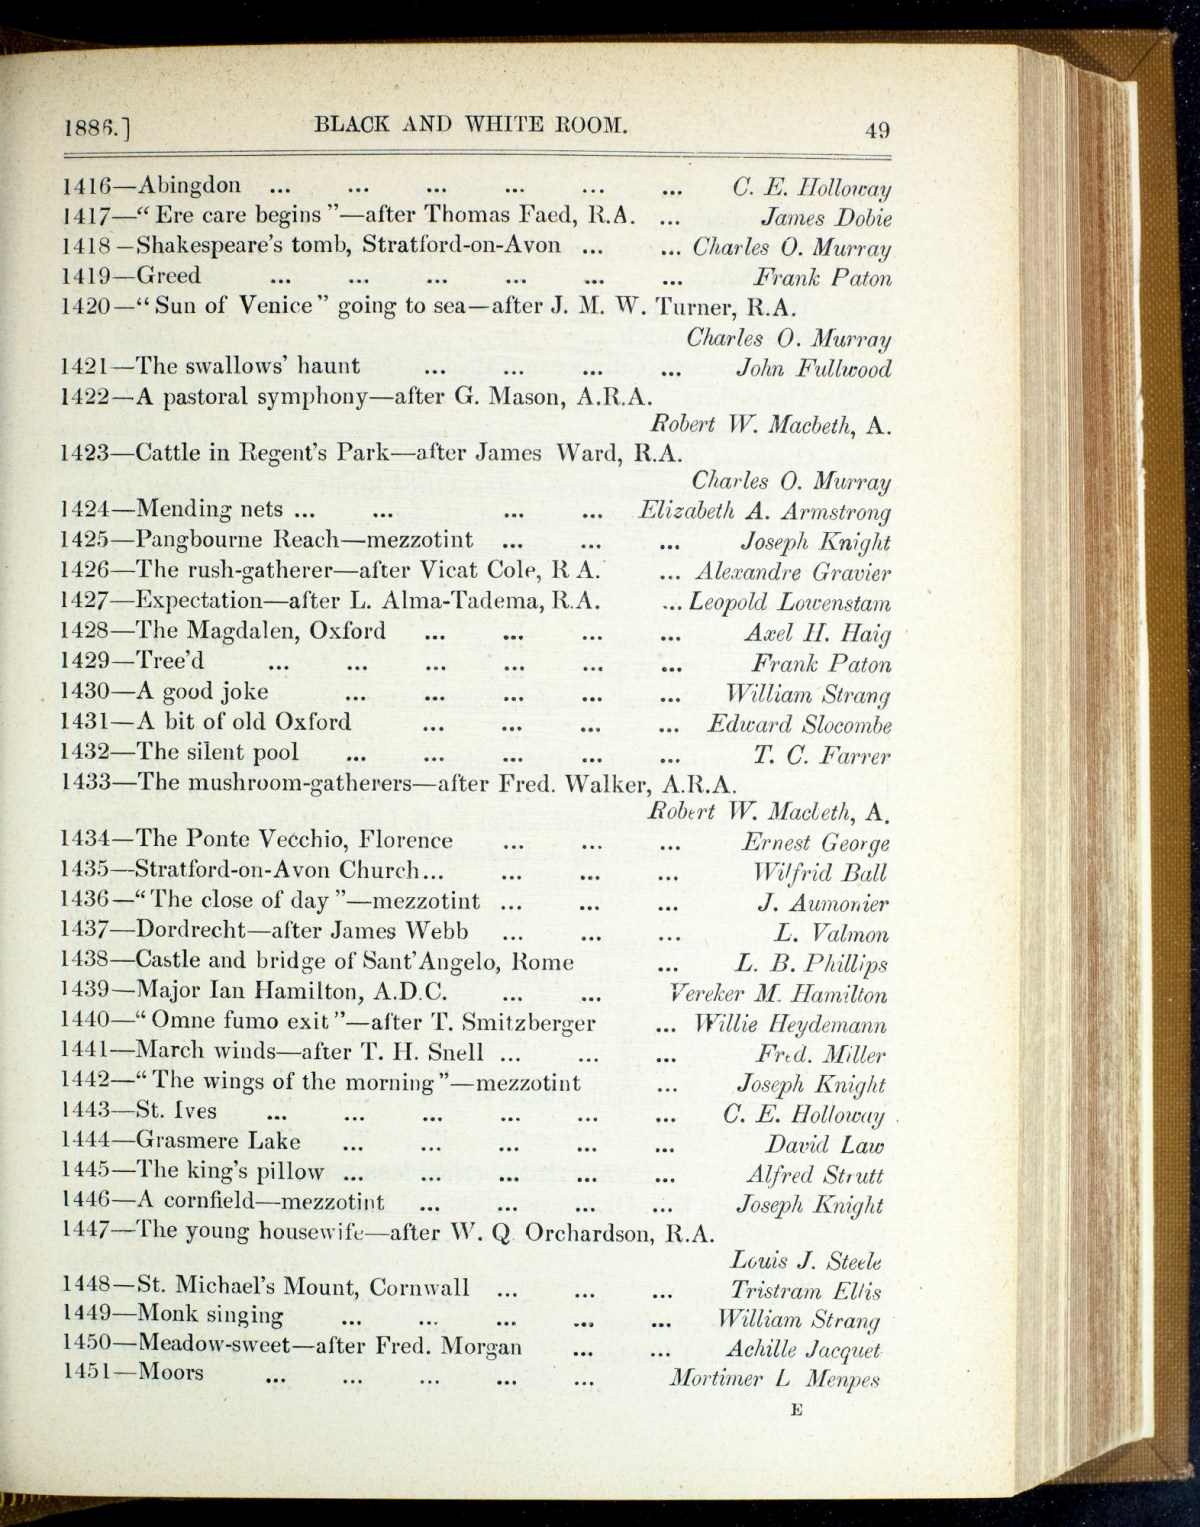 1886.] BLACK AND WHITE ROOM. 49
1416—Abingdon ... ... ... ... ... ... C. E. Holloway
1417—“Ere care begins”—after Thomas Faed, R.A. ... James Dobie
1418—Shakespeare’s tomb, Stratford-on-Avon ... ... Charles O. Murray
1419—Greed ... ... ... ... ... ... Frank Paton
1420—“Sun of Venice” going to sea—after J. M. W. Turner, R.A.
Charles O. Murray
1421—The swallows’ haunt ... ... ... ... John Fullwood
1422—A pastoral symphony—after G. Mason, A.R.A.
Robert W. Macbeth, A.
1423—Cattle in Regent’s Park—after James Ward, R.A.
Charles O. Murray
1424—Mending nets ... ... ... ... Elizabeth A. Armstrong
1425—Pangbourne Reach—mezzotint ... ... ... Joseph Knight
1426—The rush-gatherer—after Vicat Cole, R A. ... Alexandre Gravier
1427—Expectation—after L. Alma-Tadema, R.A. ... Leopold Lowenstam
1428—The Magdalen, Oxford ... ... ... ... Axel H. Haig
1429—Tree’d ... ... ... ... ... ... Frank Paton
1430—A good joke ... ... ... ... ... William Strang
1431—A bit of old Oxford ... ... ... ... Edward Slocombe
1432—The silent pool ... ... ... ... ... T. C. Farrer
1433—The mushroom-gatherers—after Fred. Walker, A.R.A.
Robert W. Macbeth, A.
1434—The Ponte Vecchio, Florence ... ... ... Ernest George
1435—Stratford-on-Avon Church... ... ... ... Wilfrid Ball
1436—“The close of day”—mezzotint ... ... ... J. Aumonier
1437—Dordrecht—after James Webb ... ... ... L. Valmon
1438—Castle and bridge of Sant’Angelo, Rome ... L. B. Phillips
1439—Major Ian Hamilton, A.D.C. ... ... Vereker M. Hamilton
1440—“Omne fumo exit”—after T. Smitzberger ... Willie Heydemann
1441—March winds—after T. H. Snell ... ... ... Fred. Miller
1442—“The wings of the morning”—mezzotint ... Joseph Knight
1443—St. Ives ... ... ... ... ... ... C. E. Holloway
1444—Grasmere Lake ... ... ... ... ... David Law
1445—The king’s pillow ... ... ... ... ... Alfred Strutt
1446—A cornfield—mezzotint ... ... ... ... Joseph Knight
1447—The young housewife—after W. Q. Orchardson, R.A.
Louis J. Steele
1448—St. Michael’s Mount, Cornwall ... ... ... Tristram Ellis
1449—Monk singing ... ... ... ... ... William Strang
1450—Meadow-sweet—after Fred. Morgan ... ... Achille Jacquet
1451—Moors ... ... ... ... ... Mortimer L Menpes
E